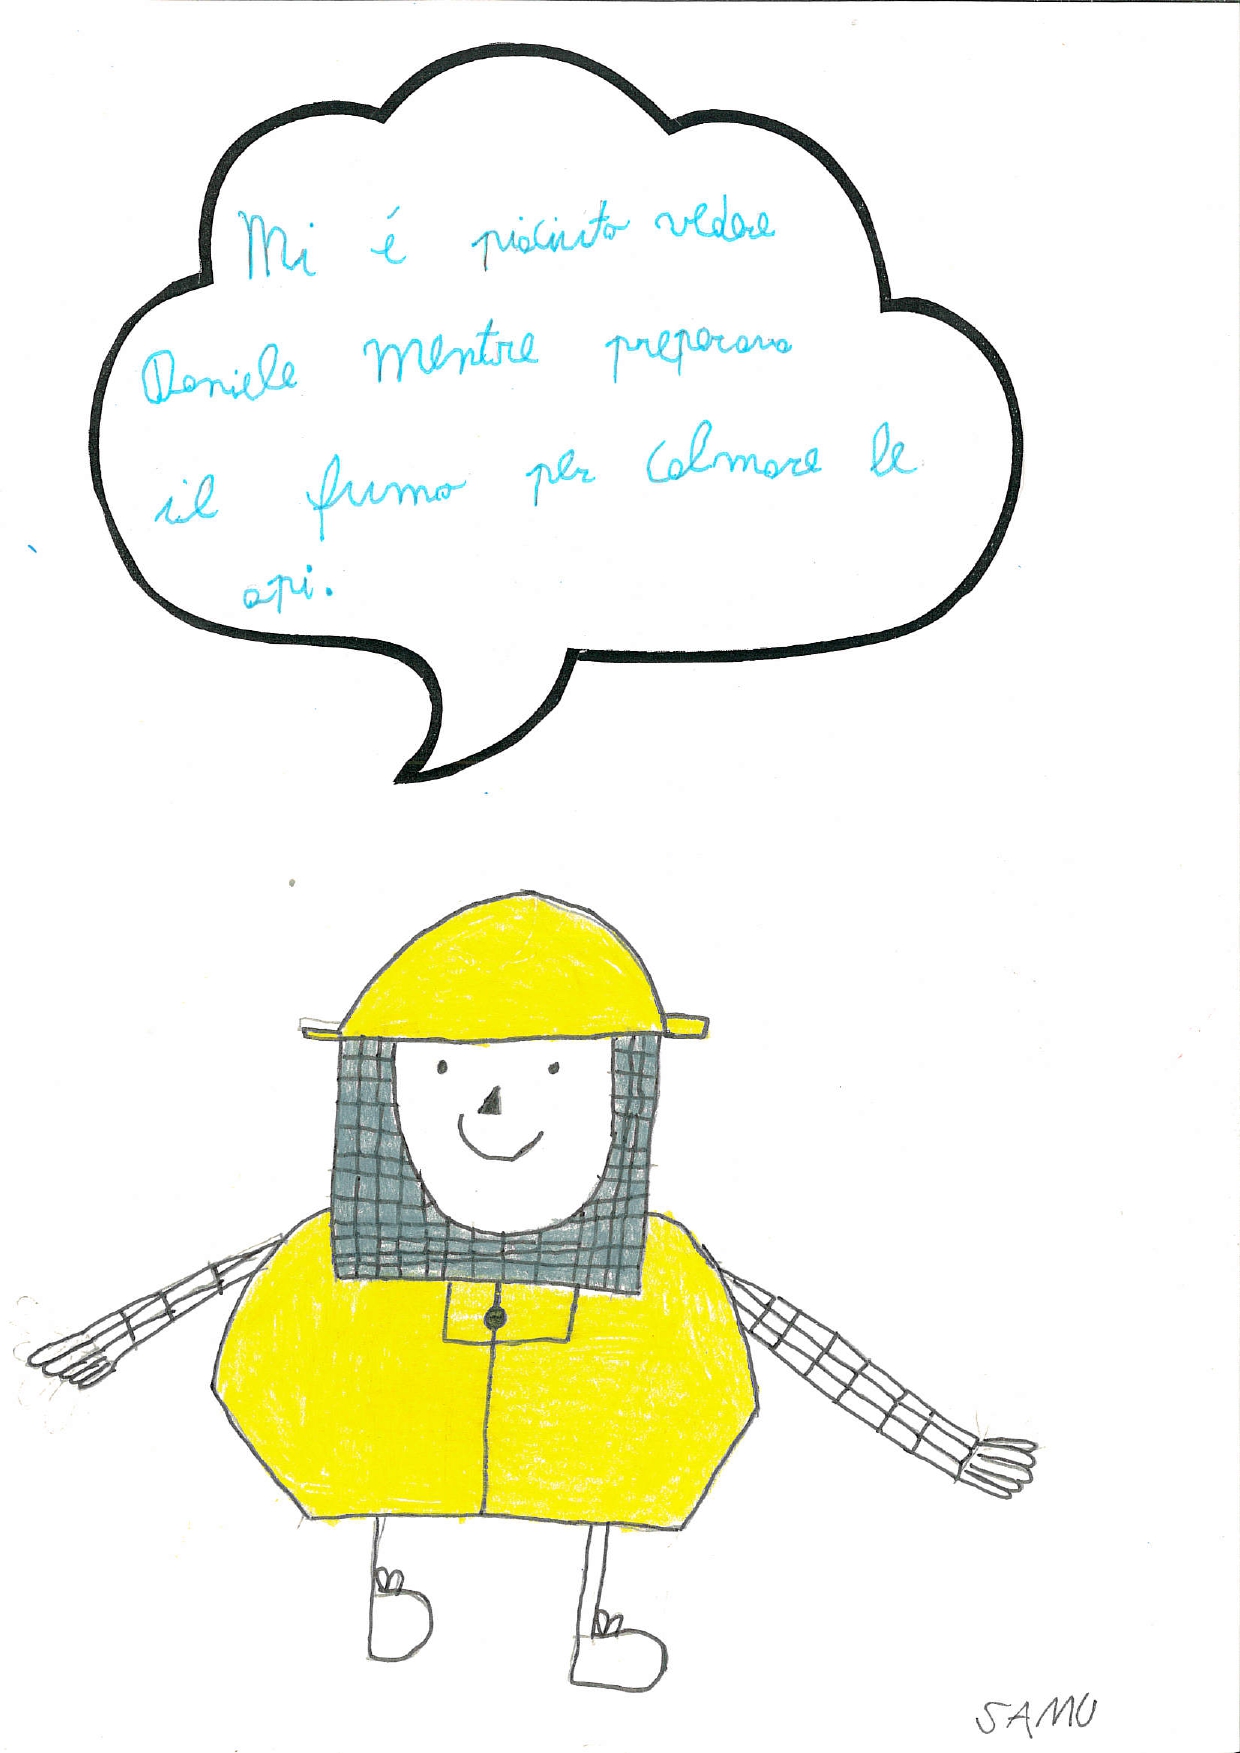 Mi é piaciuto vedere
Daniele mentre preparava
il fumo per calmare le
api.
SAMU